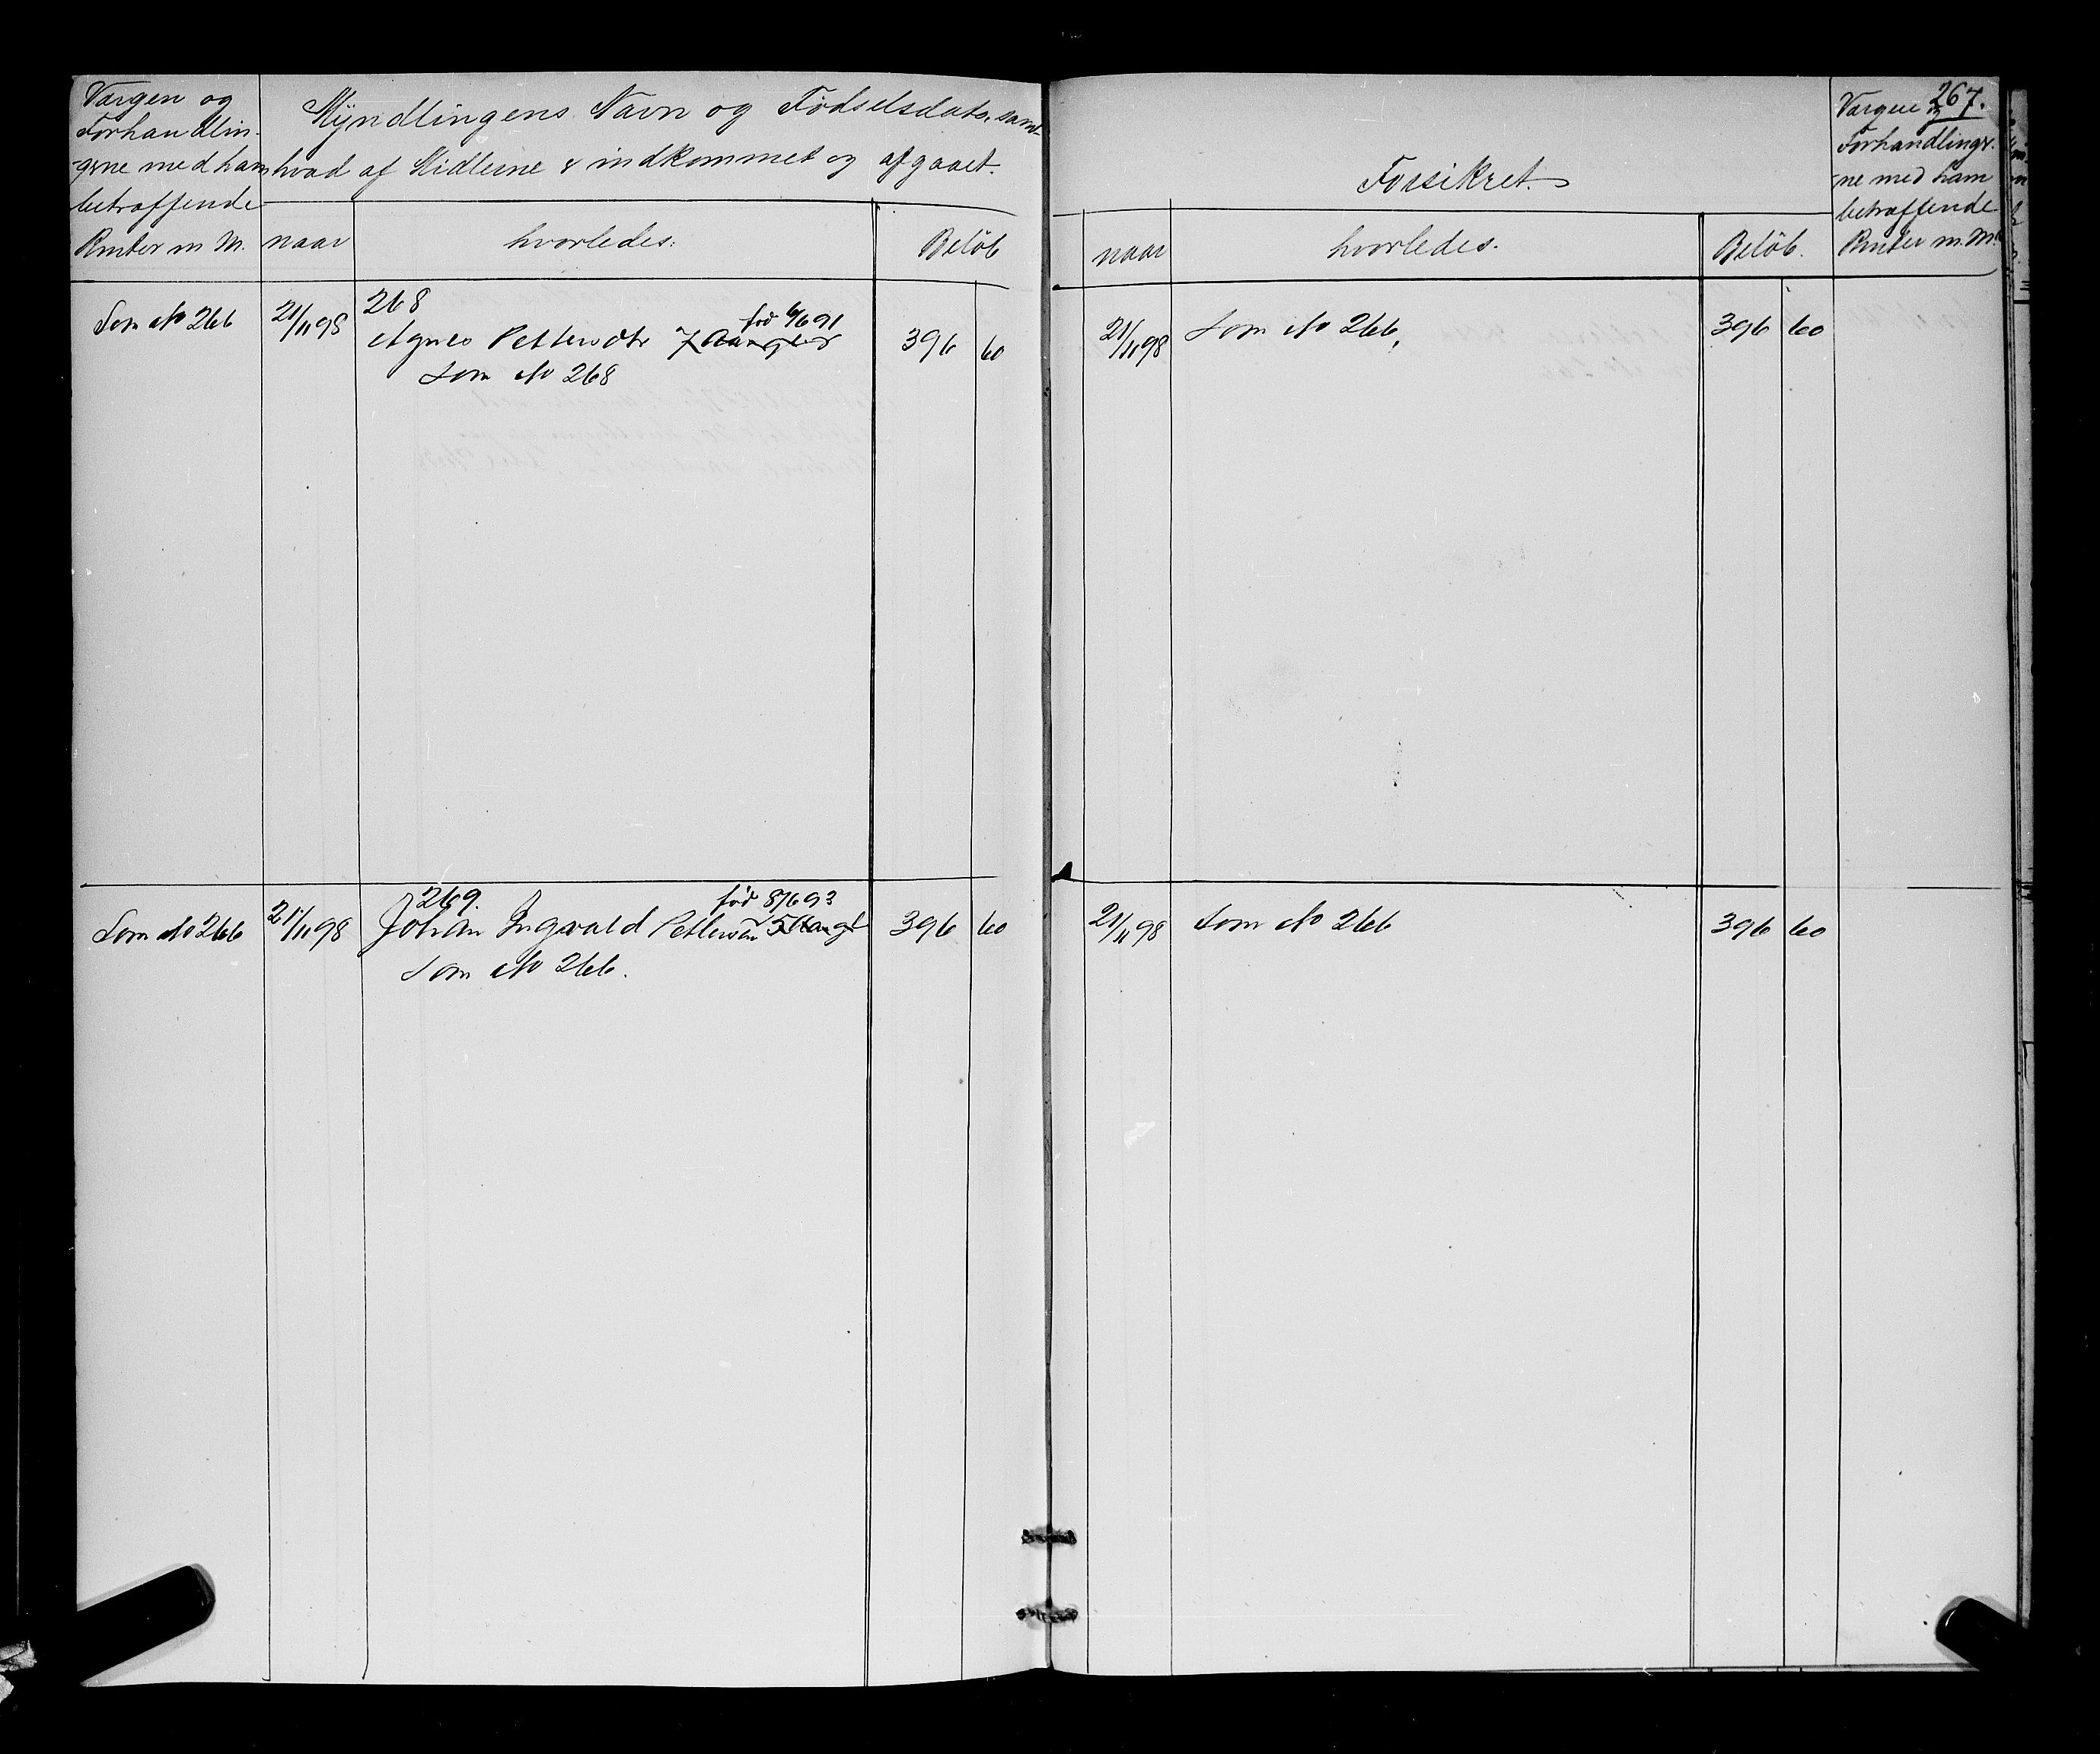 Værgen og
Forhandlin-
gerne med ham
betræffende
Renter m M.
Myndlingens Navn og Fødselsdato, samt
hvad af Midlerne er indkommet og afgaaet.
naar
hvorledes:
Beløb
Som No 266
21/11 98
268
Agnes Pettersdtr
fød 6/6 91
Som No 268
396 60
Som No 266
21/11 98
269.
fød 8/6 93
Johan Ingvald Pettersen
396 60
Som No 266.
267.
Forsikret.
Værgen og
Forhandlinger-
ne med ham
betræffende
Renter m. M.
naar
hvorledes.
Beløb.
21/11 98
Som No 266,
396 60
21/11 98
Som No 266
396 60